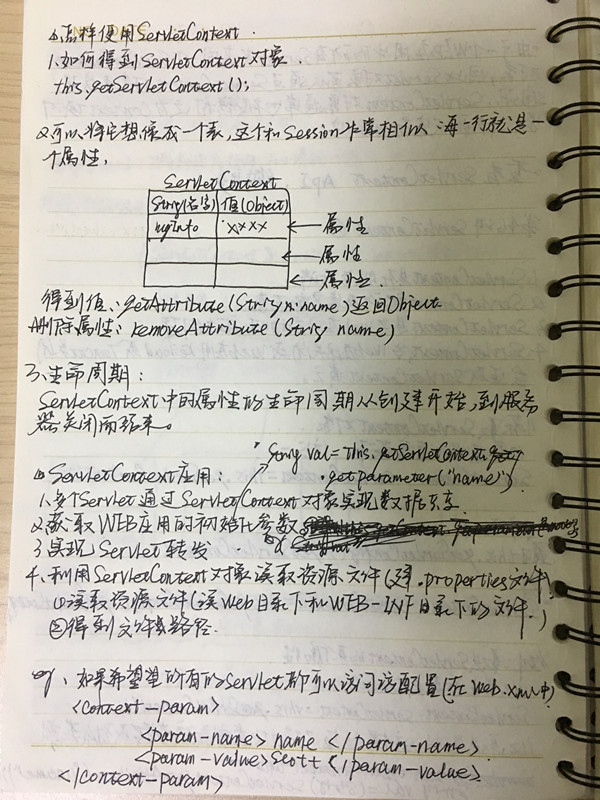 怎样使用ServletContext.
1.如何得到ServletContext对象.
this.getServletContext();
2.可以将它想像成一个表,这个和Session非常相似 每一行就是一
个属性,
ServletContext
String(名字) 值(Object)
myInfo xxxx ← 属性
← 属性
← 属性.
得到值: getAttribute(String name)返回Object
删除属性: removeAttribute(String name)
3.生命周期:
ServletContext中的属性的生命周期从创建开始,到服务
器关闭而结束。
String val=this.getServletContext
ServletContext应用:
.getparameter("name")
1.多个Servlet通过ServletContext对象实现数据共享.
2.获取WEB应用的初始化参数
3.实现Servlet转发
4.利用ServletContext对象读取资源文件(.properties文件)
①读取资源文件(读Web目录下和WEB-INF目录下的文件.)
②得到文件路径.
eg、如果希望所有的servlet都可以访问该配置(在web.xml中)
<context-param>
<param-name> name </param-name>
<param-value> Scott </param-value>
</context-param>